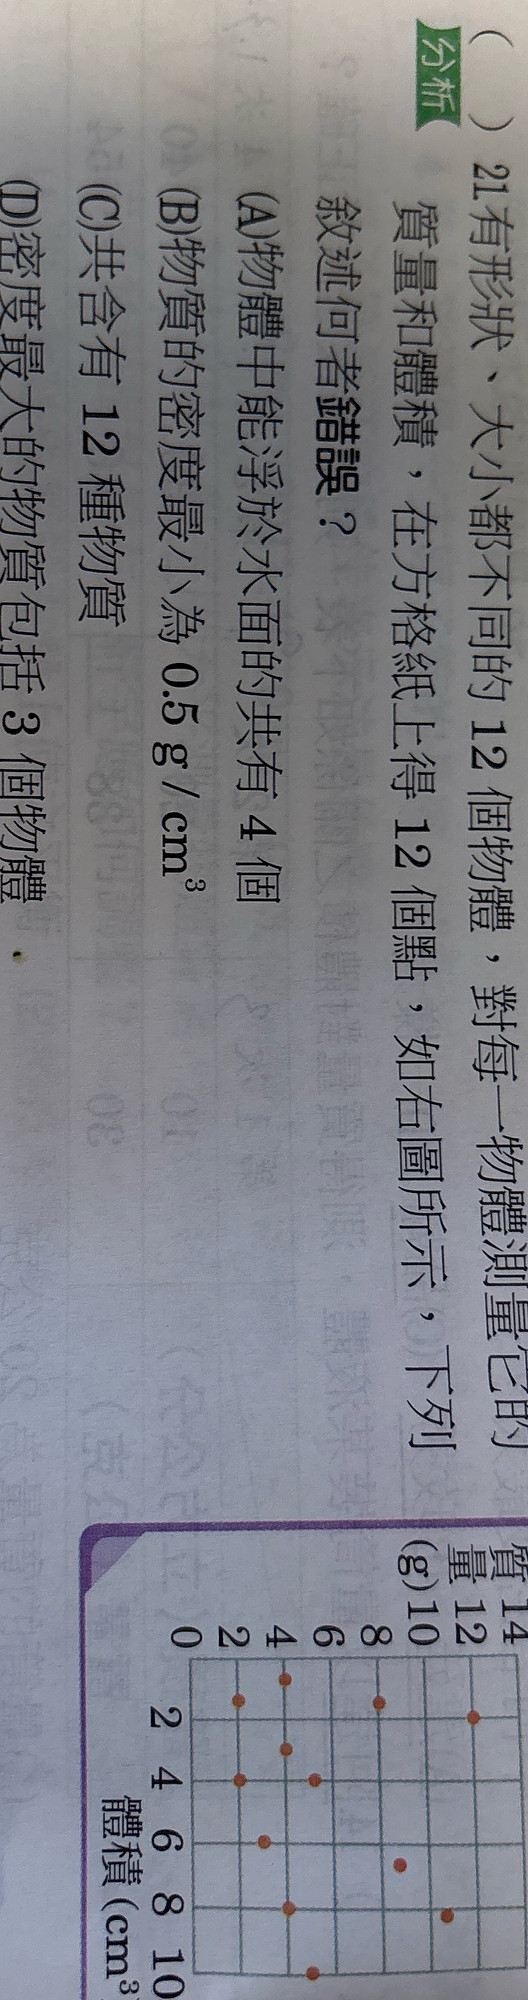 ( ) 21有形狀、大小都不同的 12 個物體，對每一物體測量它的
分析
質量和體積，在方格紙上得 12 個點，如右圖所示，下列
敘述何者錯誤？
(A)物體中能浮於水面的共有 4 個
(B)物質的密度最小為 0.5 g / cm³
(C)共含有 12 種物質
(D)密度最大的物質包括 3 個物體
質量(g)
14
12
10
8
6
4
2
0
2 4 6 8 10
體積(cm³